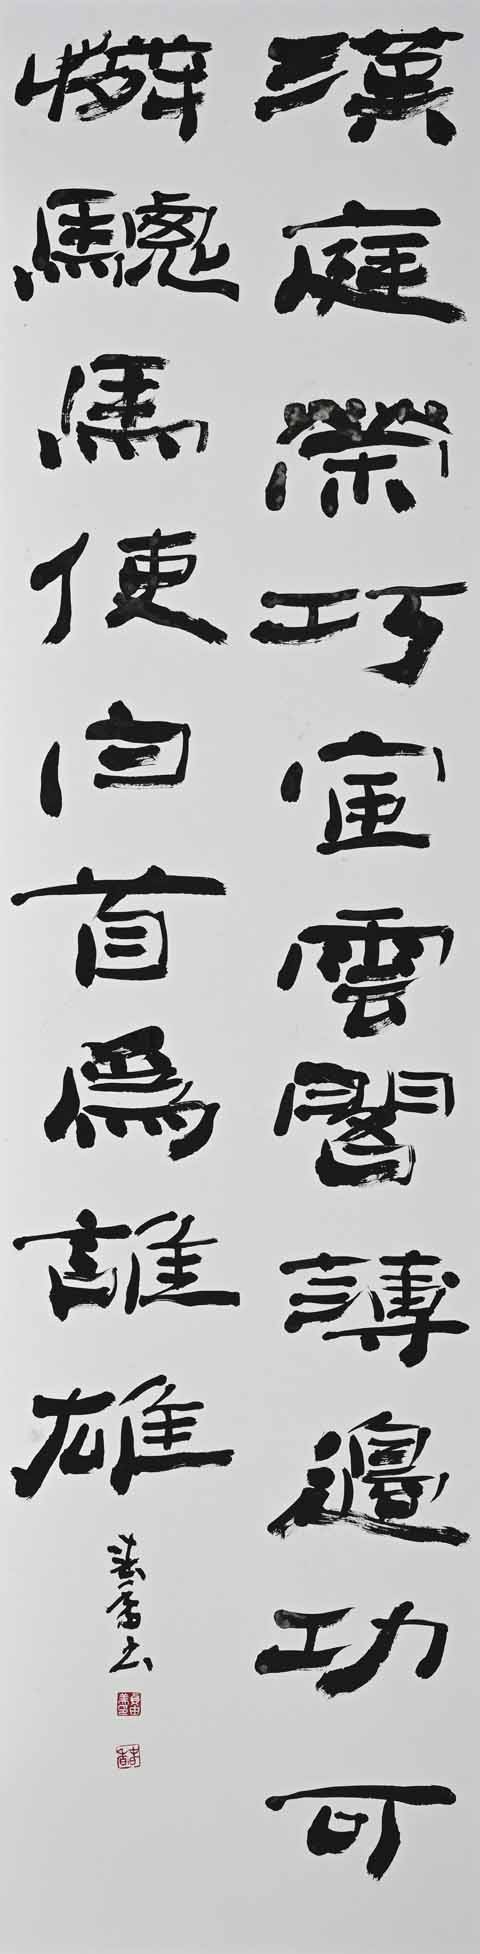 漢庭榮巧宦雲閣薄邊功可
憐驄馬使白首爲誰雄
春雷书